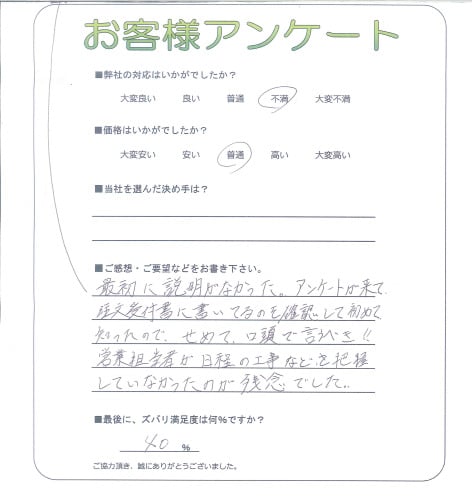 お客様アンケート
■弊社の対応はいかがでしたか？
大変良い 良い 普通 不満 大変不満
■価格はいかがでしたか？
大変安い 安い 普通 高い 大変高い
■当社を選んだ決め手は？
■ご感想・ご要望などをお書き下さい。
最初に説明がなかった。アンケートが来て、
注文受付書に書いてるのを確認して初めて
知ったので、せめて、口頭で言うべき!!
営業担当者が日程の工事などを把握
していなかったのが残念でした。
■最後に、ズバリ満足度は何％ですか？
40 %
ご協力頂き、誠にありがとうございました。